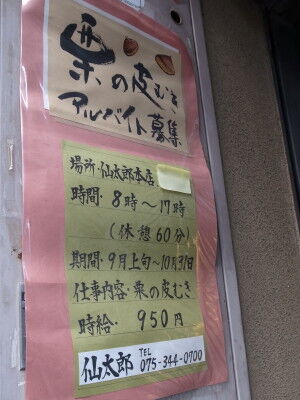 栗の皮むき
アルバイト募集
場所・仙太郎本店
時間・8時〜17時
(休憩60分)
期間・9月上旬〜10月31日
仕事内容・栗の皮むき
時給・950円
仙太郎 TEL 075-344-0700